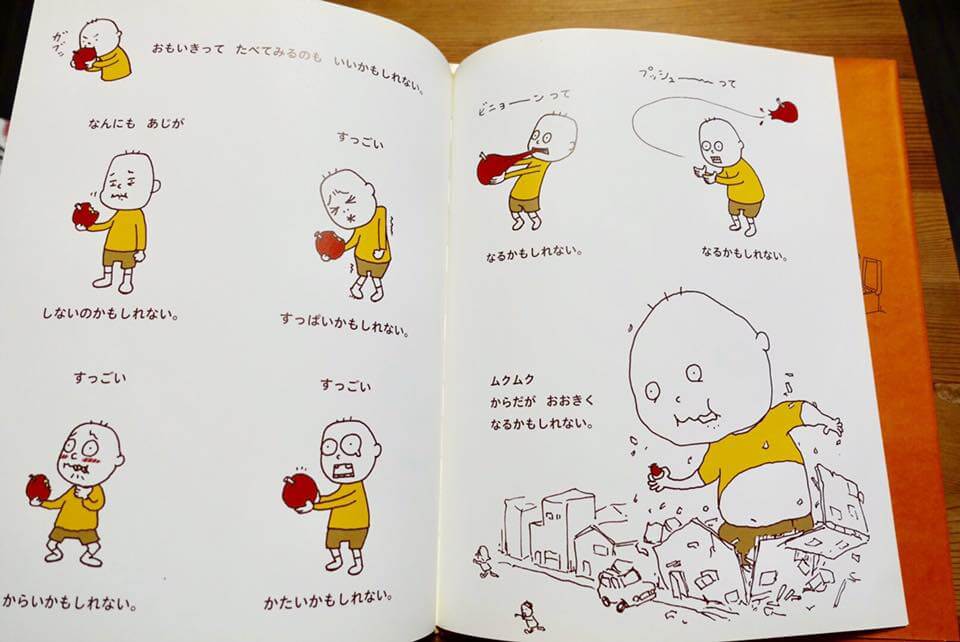 ガブッ
おもいきって たべてみるのも いいかもしれない。
なんにも あじが
しないのかもしれない。
すっごい
すっぱいかもしれない。
すっごい
からいかもしれない。
すっごい
かたいかもしれない。
ビニョーンって
なるかもしれない。
プッシューーって
なるかもしれない。
ムクムク
からだが おおきく
なるかもしれない。